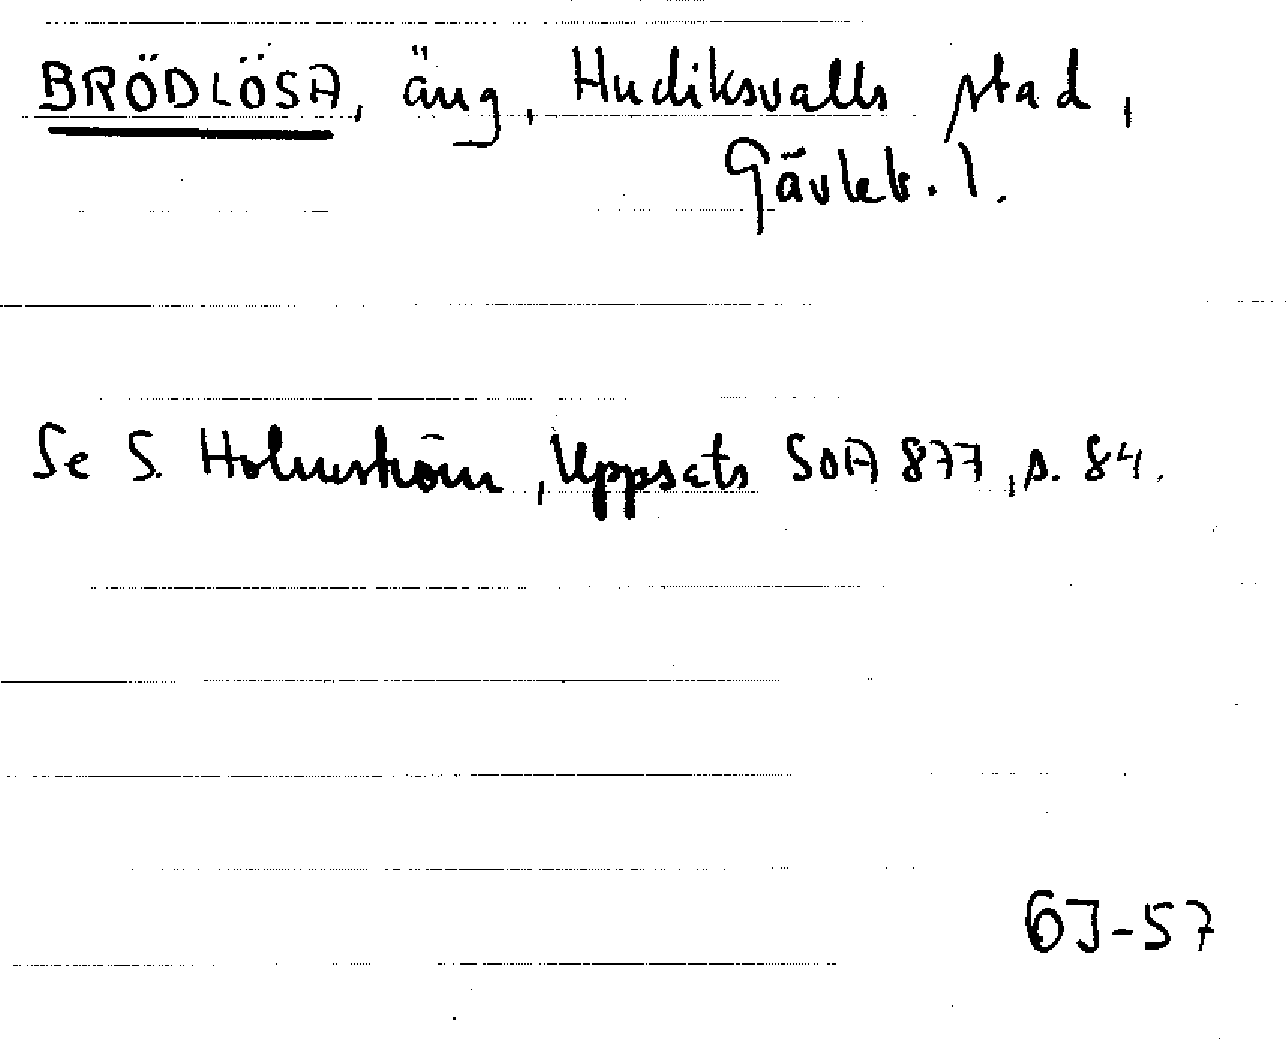 BRÖDLÖSA, äng, Hudiksvalls stad,
Gävleb. l.
Se S. Holmström, Uppsats SOA 877, s. 84.
GJ-57